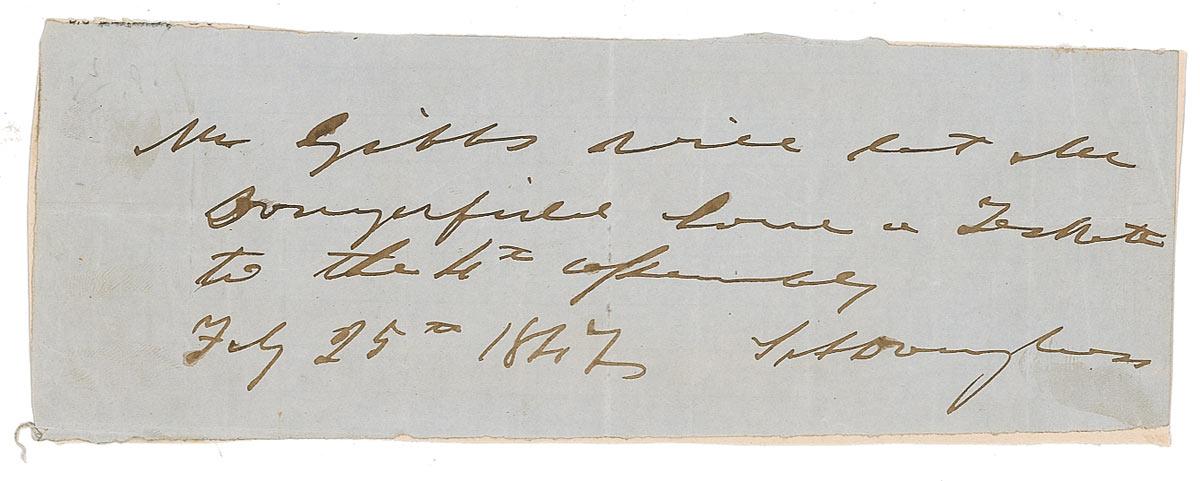 Mr Gibbs will let Mr
Dangerfield have a Tickett
to the 4th assembly
Feby 25th 1847 S A Douglass